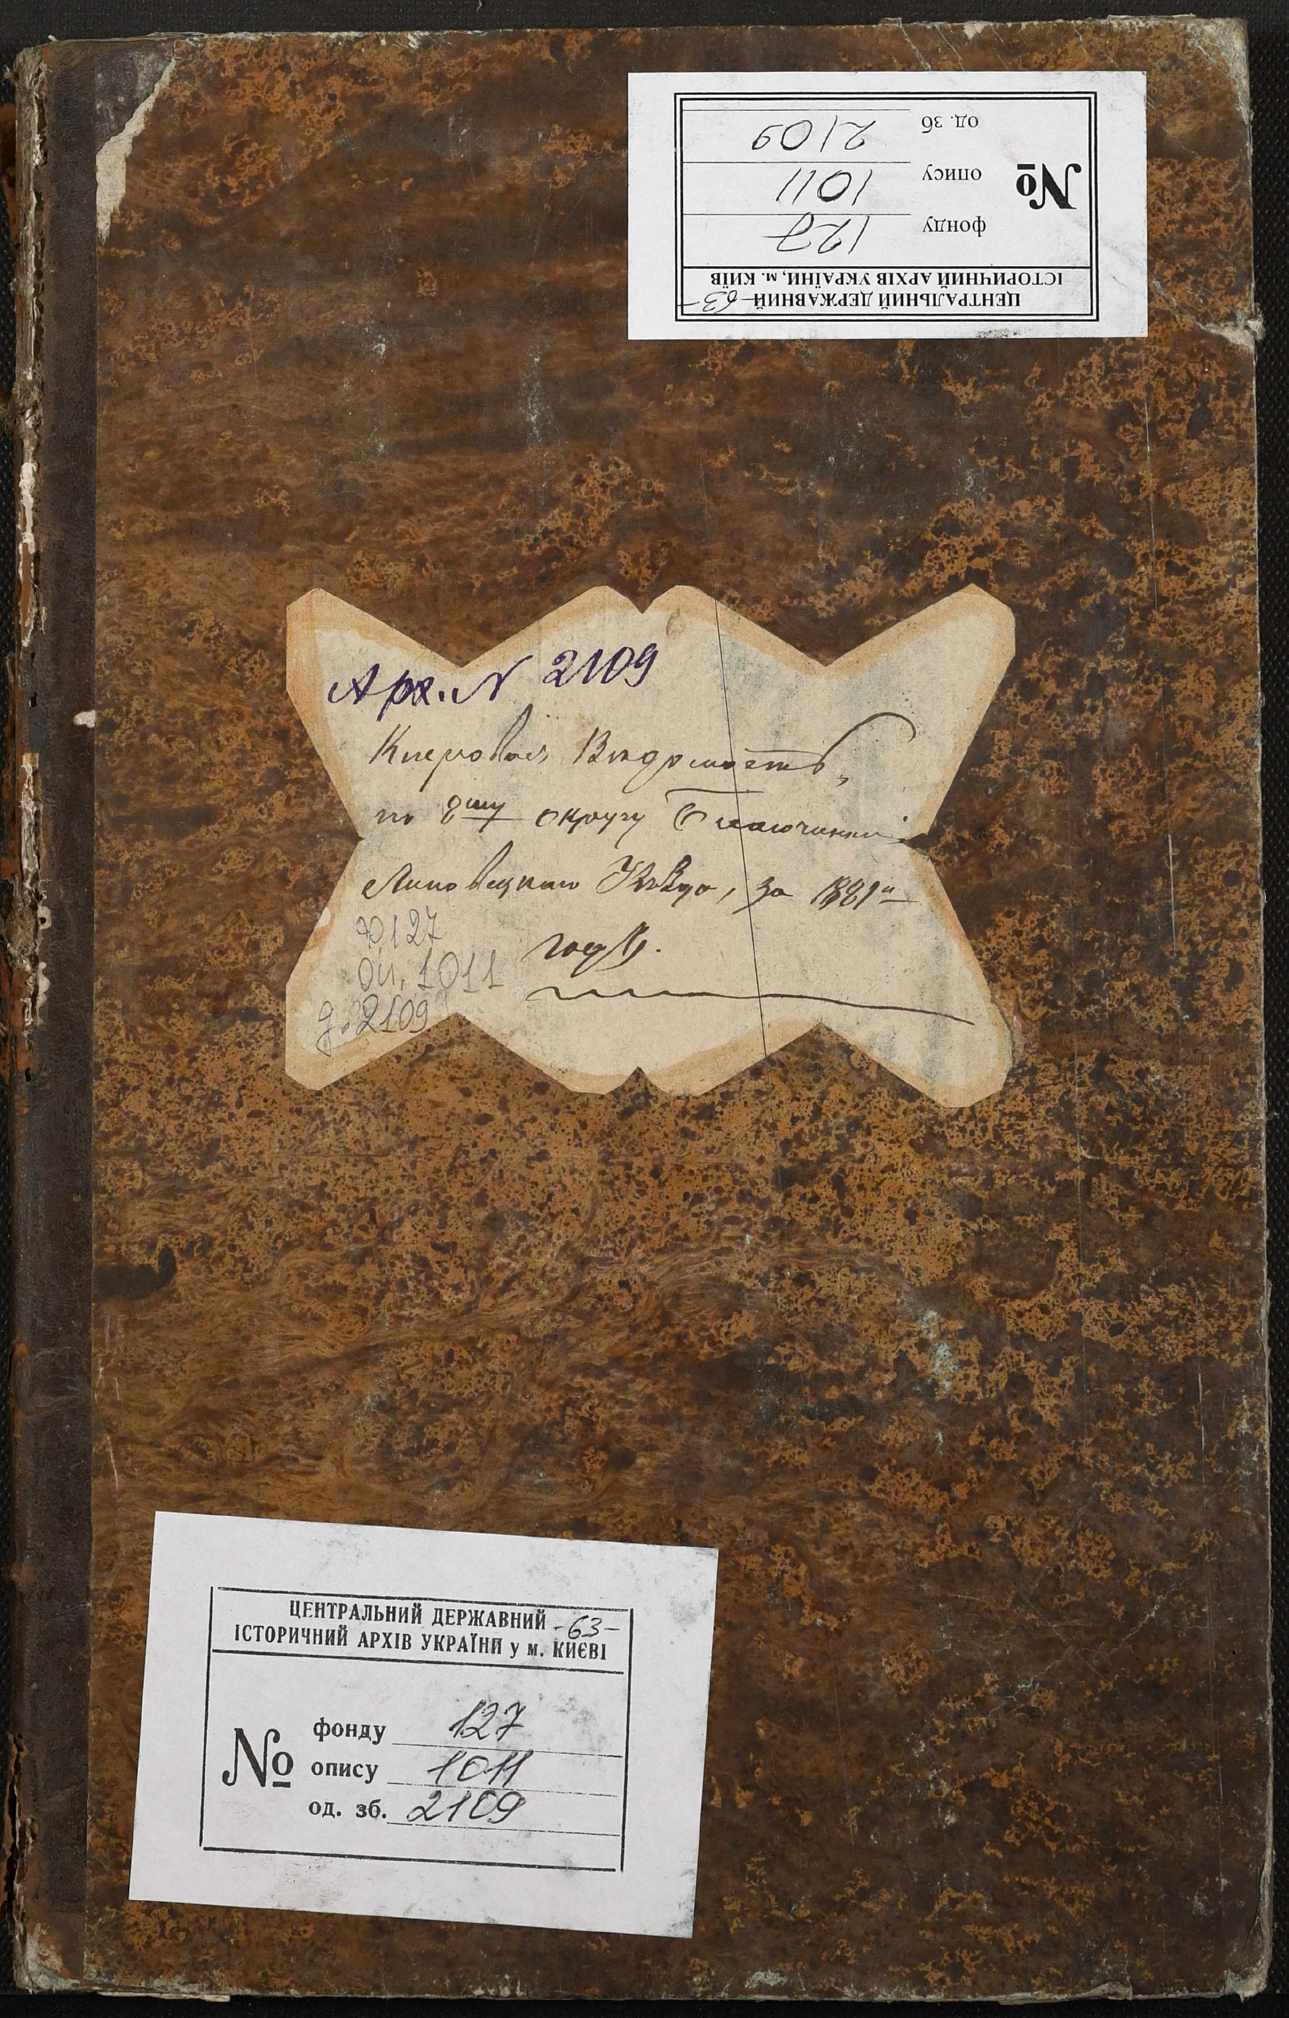 ЦЕНТРАЛЬНИЙ ДЕРЖАВНИЙ -63-
ІСТОРИЧНИЙ АРХІВ УКРАЇНИ, м. КИЇВ
№
фонду 127
опису 1011
од. зб 2109
Арх. N 2109
Клировая Вѣдомость,
по 8му округу Благочинія
Липовецкаго Уѣзда, за 1881й
годъ.
ф 127
оп. 1011
д. 2109
ЦЕНТРАЛЬНИЙ ДЕРЖАВНИЙ -63-
ІСТОРИЧНИЙ АРХІВ УКРАЇНИ у м. КИЄВІ
№
фонду 127
опису 1011
од. зб. 2109